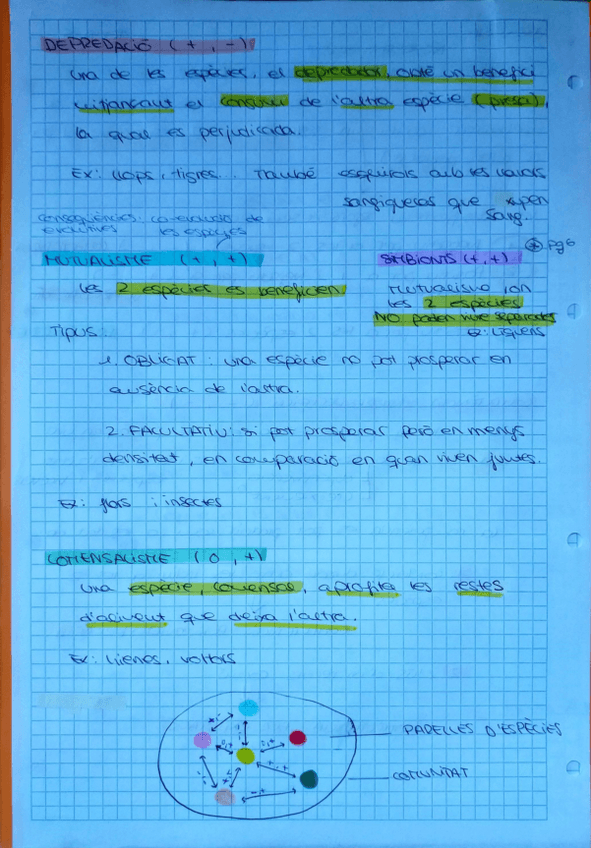 DEPREDACIÓ (+, -)
Una de les espècies, el depredador, obté un benefici
mitjançant el consum de l'altra espècie (presa),
la qual es perjudicada.
Ex: llops, tigres... També esquirols amb les
sangigueses que xupen
sang.
Conseqüències: coevolució de
evolutives les espècies
* Pg 6
MUTUALISME (+, +)
Les 2 espècies es beneficien
SIMBIONTS (+, +)
Mutualisme on
les 2 espècies
NO poden viure separades
Ex: líquens
Tipus:
1. OBLIGAT: una espècie no pot prosperar en
ausència de l'altra.
2. FACULTATIU: si pot prosperar però en menys
densitat, en comparació en quan viuen juntes.
Ex: flors i insectes
COMENSALISME (0, +)
Una espècie, comensal, aprofita les restes
d'aliment que deixa l'altra.
Ex: hienes, voltors
PARELLES D'ESPÈCIES
COMUNITAT